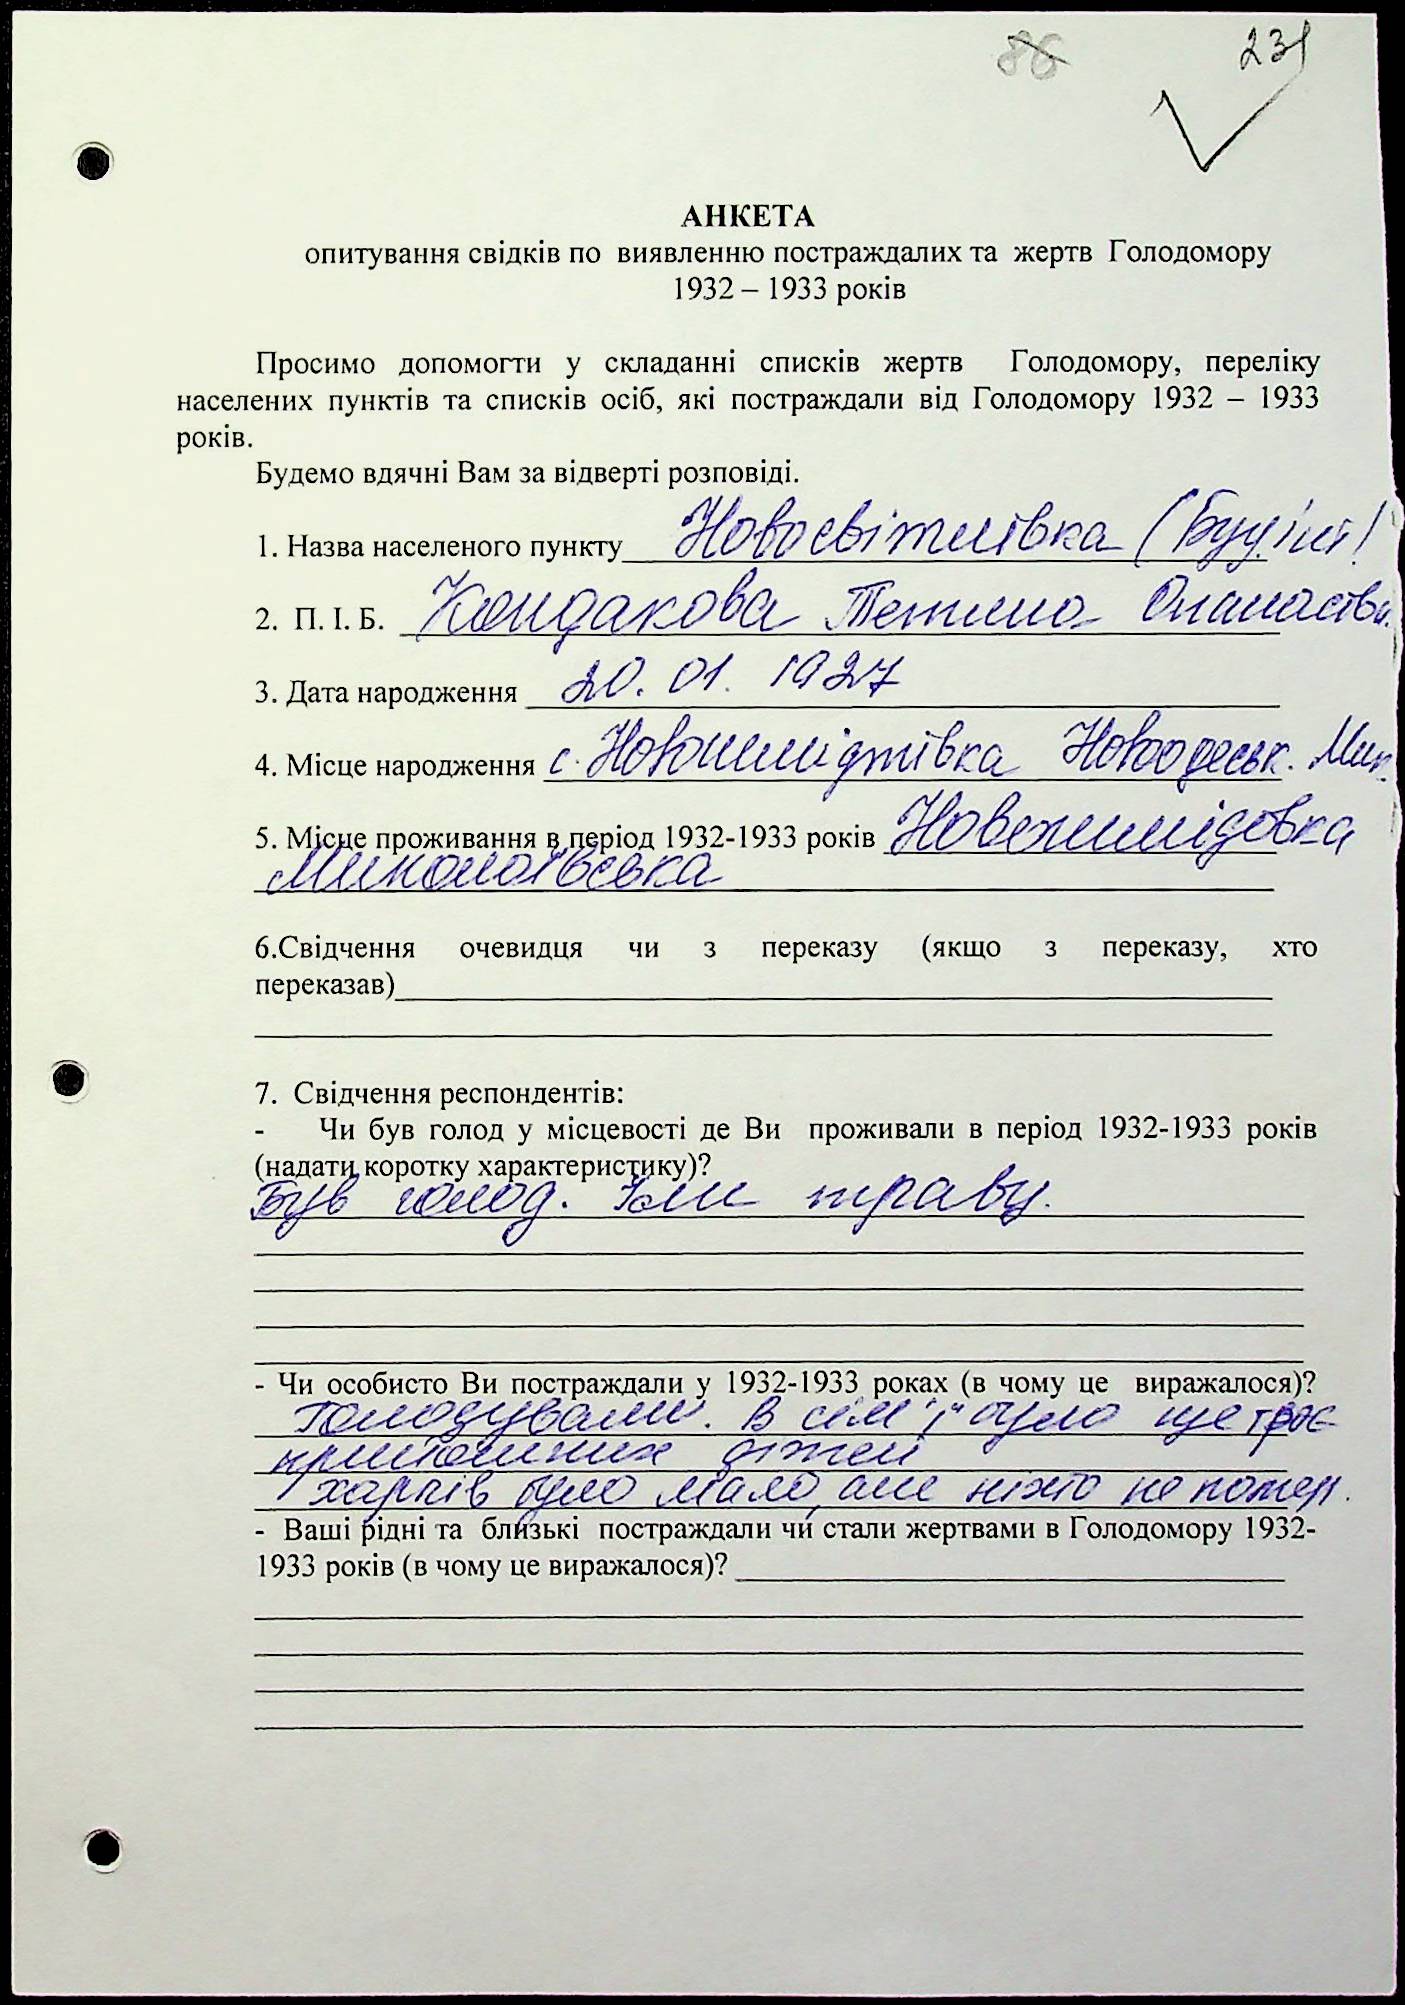 86 231
АНКЕТА
опитування свідків по виявленню постраждалих та жертв Голодомору
1932 – 1933 років
Просимо допомогти у складанні списків жертв Голодомору, переліку
населених пунктів та списків осіб, які постраждали від Голодомору 1932 – 1933
років.
Будемо вдячні Вам за відверті розповіді.
1. Назва населеного пункту Новосвітлівка
2. П. І. Б. Кондакова Тетяна Опанасівн.
3. Дата народження 20. 01. 1927
4. Місце народження с. Новошмідтівка Новоодеськ. Мик.
5. Місце проживання в період 1932-1933 років Новошмідовка
Миколаївська
6.Свідчення очевидця чи з переказу (якщо з переказу, хто
переказав)
7. Свідчення респондентів:
- Чи був голод у місцевості де Ви проживали в період 1932-1933 років
(надати коротку характеристику)?
Був голод. Їли траву.
- Чи особисто Ви постраждали у 1932-1933 роках (в чому це виражалося)?
Голодували. В сім"ї було ще троє
дітей
харчів було мало, але ніхто не помер.
- Ваші рідні та близькі постраждали чи стали жертвами в Голодомору 1932-
1933 років (в чому це виражалося)?